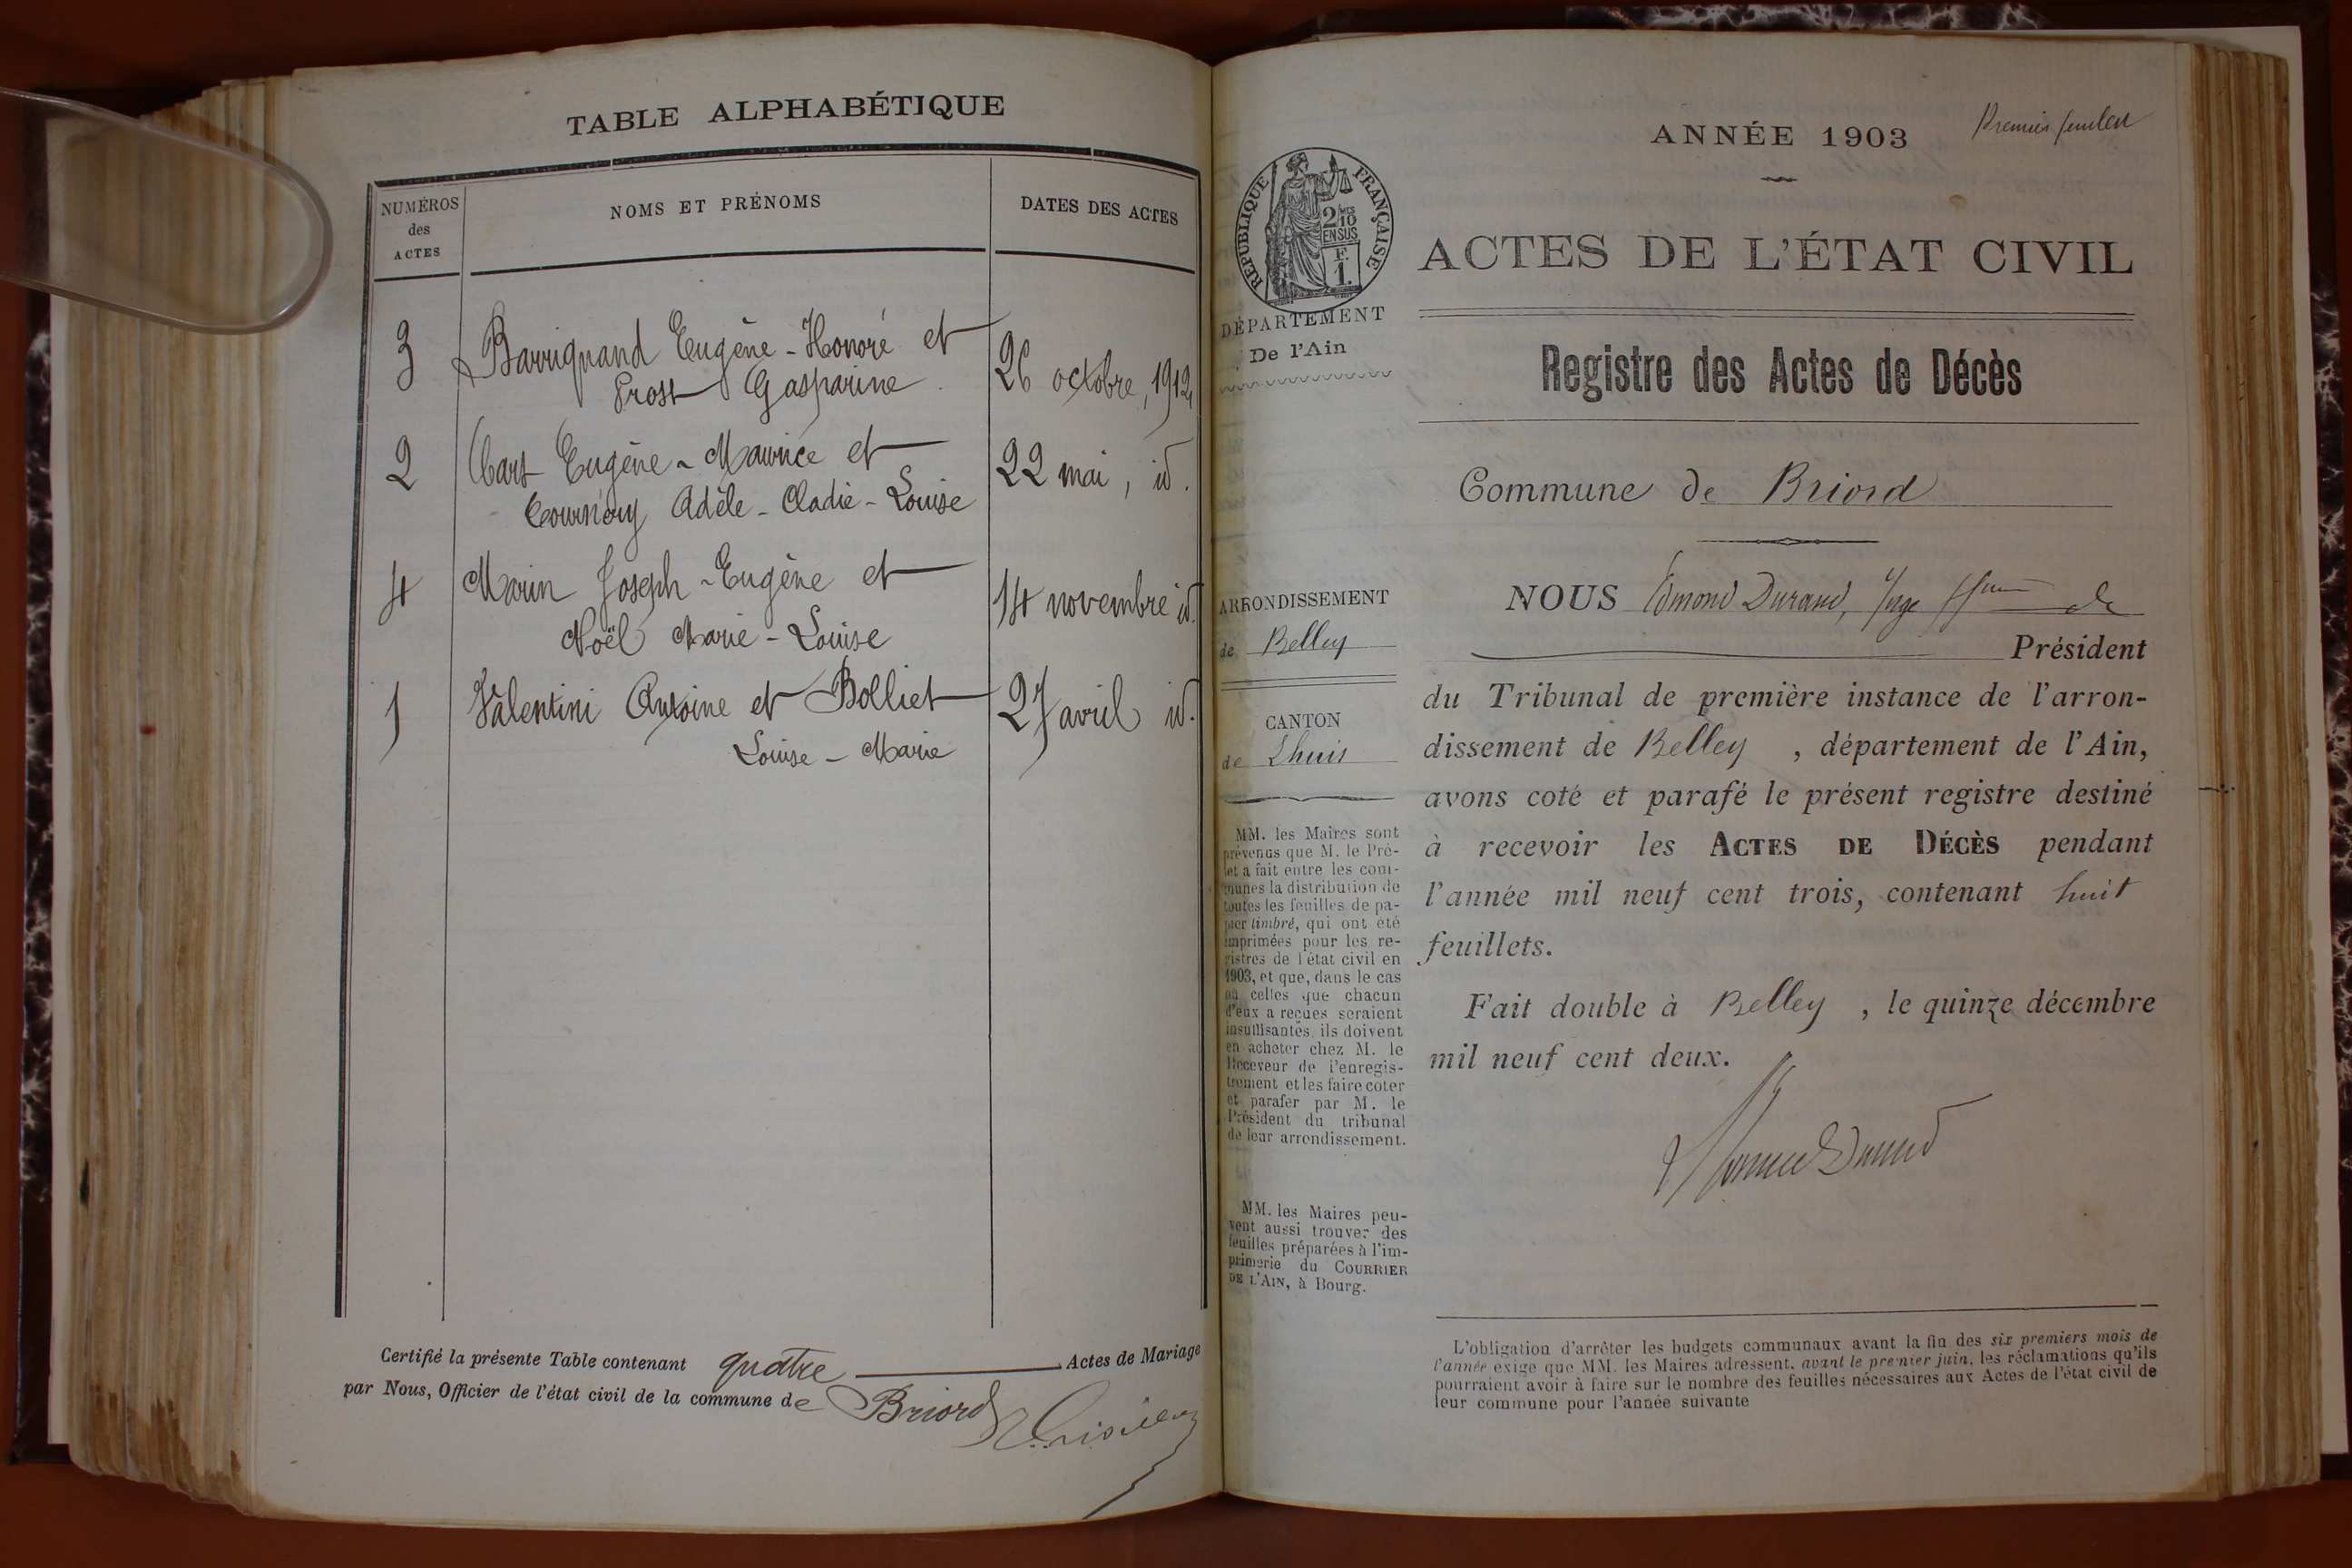 TABLE ALPHABÉTIQUE
NUMÉROS
des
ACTES
NOMS ET PRÉNOMS
DATES DES ACTES
3 Barriquand Eugène - Honoré et
Prost Gasparine 26 octobre, 1912
2 Cart Eugène - Maurice et 22 mai, id.
Adèle - Cladie - Louise
4 Marin Joseph - Eugène et 14 novembre id.
Noël Marie - Louise
1 Valentini Antoine et Bolliet 27 avril id.
Louise - Marie
Certifié la présente Table contenant quatre Actes de Mariage
par Nous, Officier de l'état civil de la commune de Briord
Premier feuillet
ANNÉE 1903
RÉPUBLIQUE FRANÇAISE
2/10 MES
EN SUS
F.
1.
ACTES DE L'ÉTAT CIVIL
DÉPARTEMENT
De l'Ain
Registre des Actes de Décès
Commune de Briord
ARRONDISSEMENT
de Belley
CANTON
de Lhuis
MM. les Maires sont
prévenus que M. le Pré-
fet a fait entre les com-
munes la distribution de
toutes les feuilles de pa-
pier timbré, qui ont été
imprimées pour les re-
gistres de l'état civil en
1903, et que, dans le cas
où celles que chacun
d'eux a reçues seraient
insuffisantes, ils doivent
en acheter chez M. le
Receveur de l'enregis-
trement et les faire coter
et parafer par M. le
Président du tribunal
de leur arrondissement.
MM. les Maires peu-
vent aussi trouver des
feuilles préparées à l'im-
primerie du COURRIER
DE L'AIN, à Bourg.
NOUS Edmond Durand, Juge ffons de
Président
du Tribunal de première instance de l'arron-
dissement de Belley , département de l'Ain,
avons coté et parafé le présent registre destiné
à recevoir les ACTES DE DÉCÈS pendant
l'année mil neuf cent trois, contenant huit
feuillets.
Fait double à Belley , le quinze décembre
mil neuf cent deux.
L'obligation d'arrêter les budgets communaux avant la fin des six premiers mois de
l'année exige que MM. les Maires adressent, avant le premier juin, les réclamations qu'ils
pourraient avoir à faire sur le nombre des feuilles nécessaires aux Actes de l'état civil de
leur commune pour l'année suivante